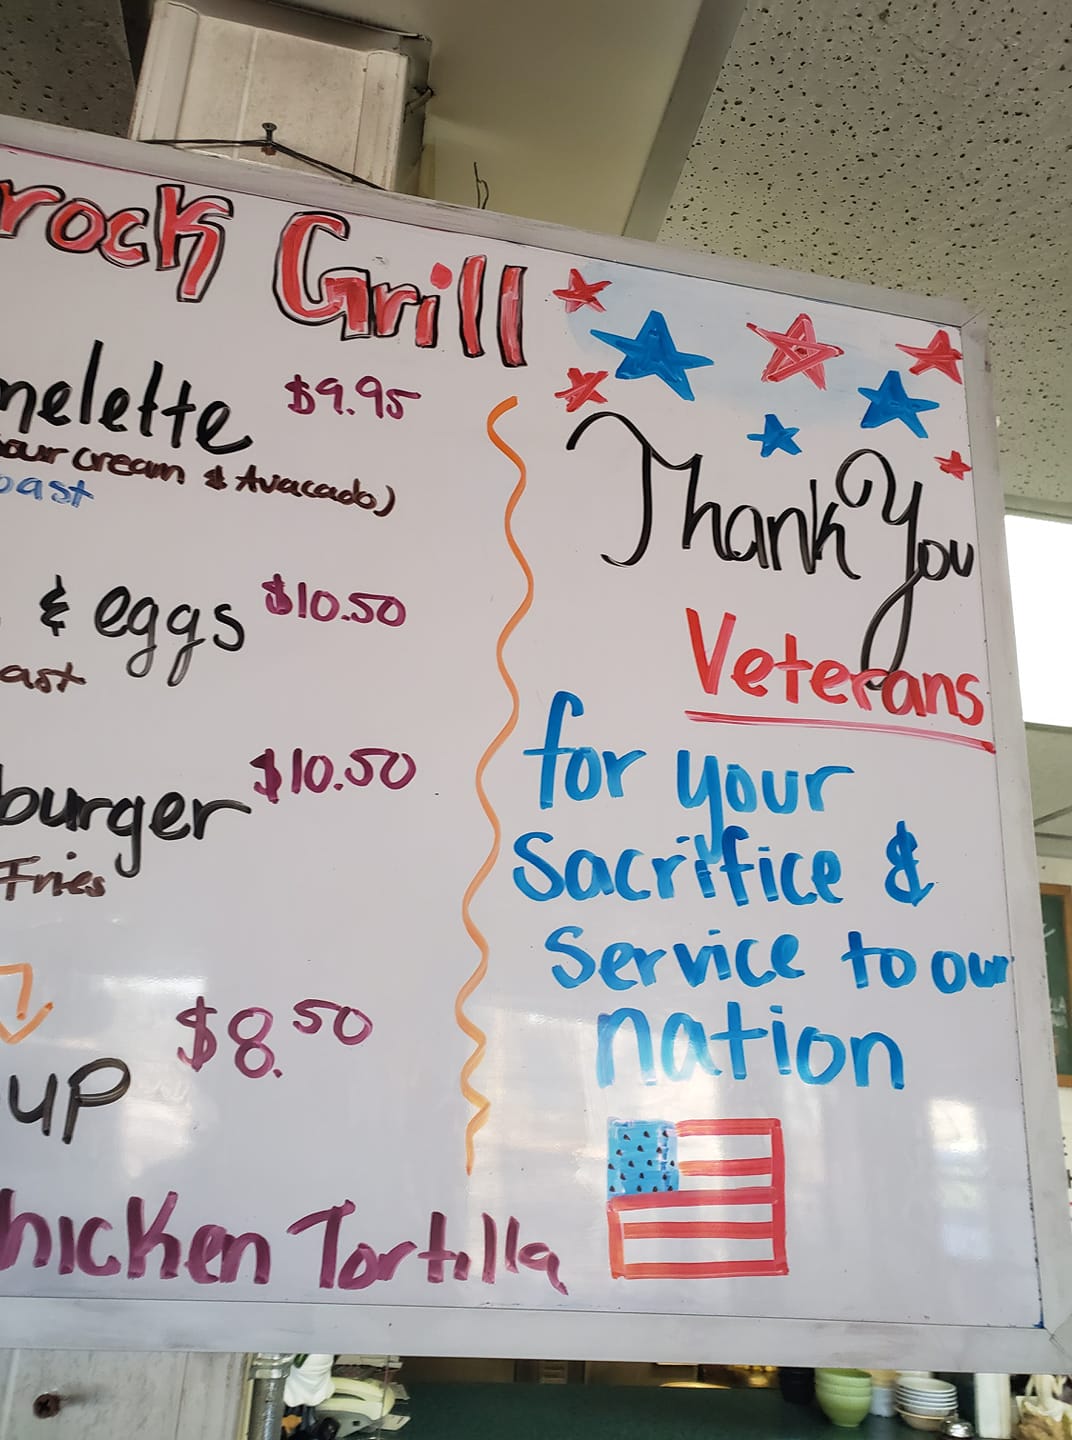 rock Grill
melette $9.95
our cream & Avacado)
oast
& eggs $10.50
ast
burger $10.50
Fries
up $8.50
hicken Tortilla
Thank You
Veterans
for your
Sacrifice &
Service to our
nation